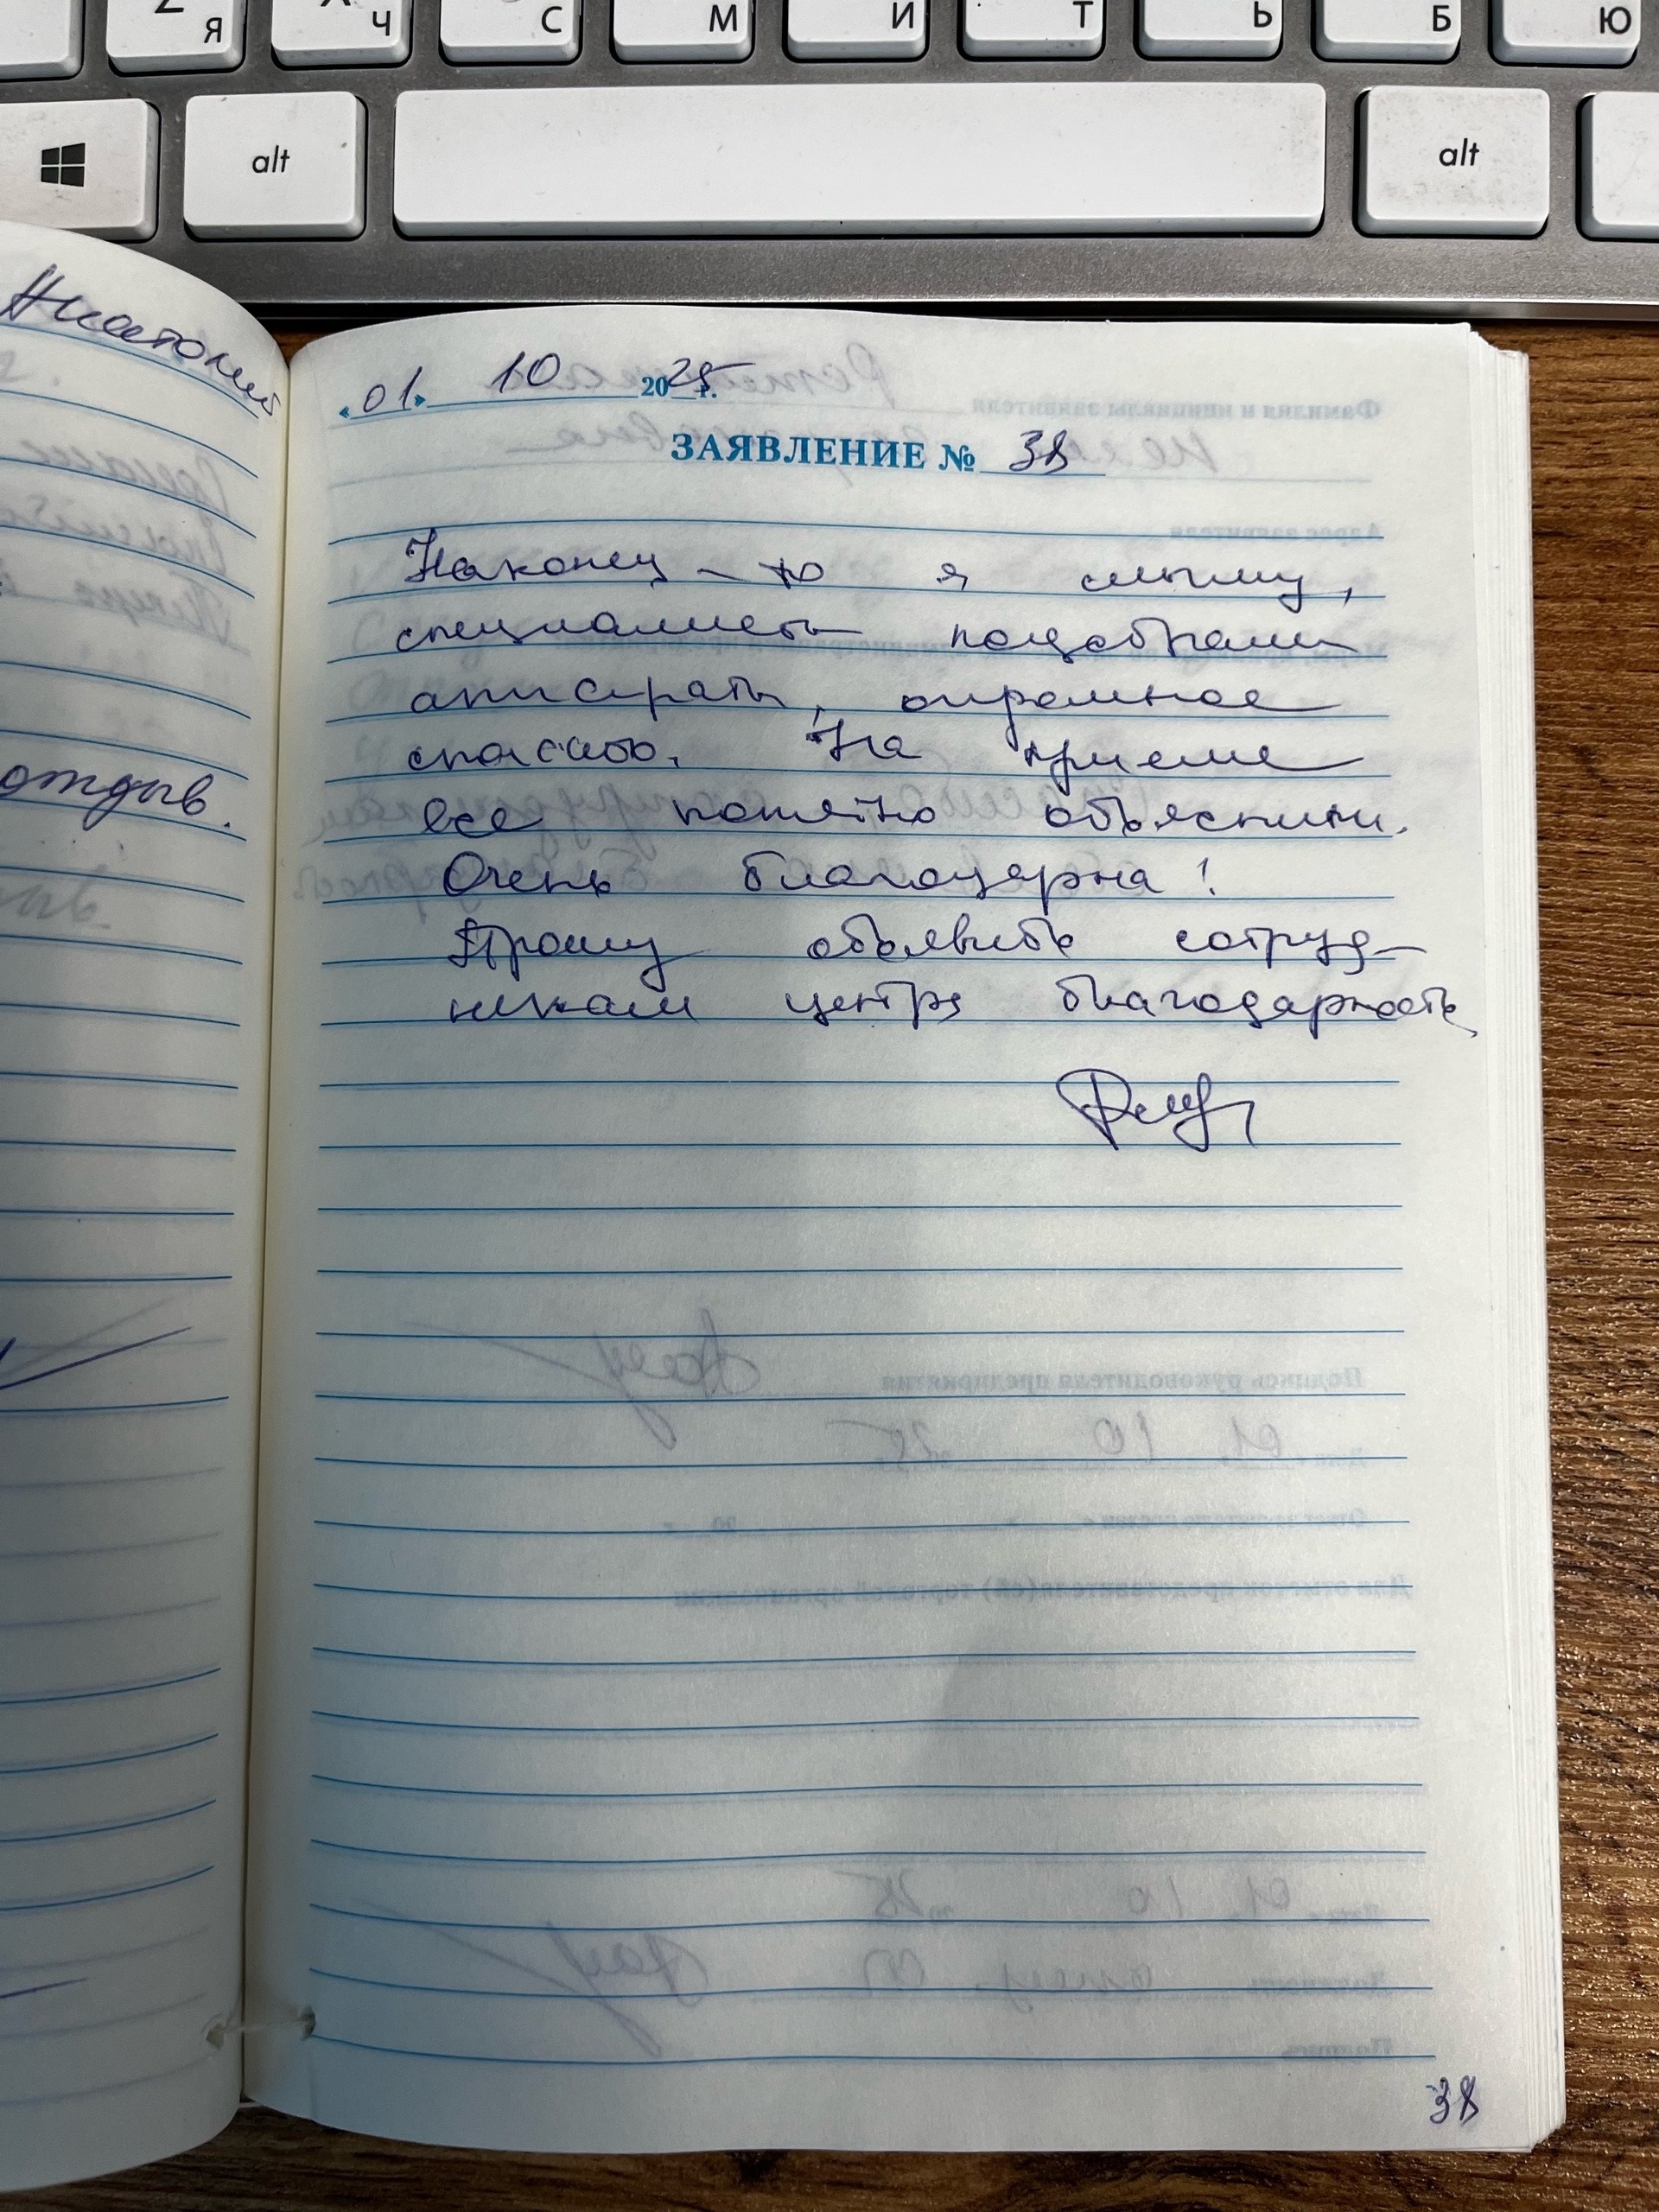 Я Ч С М И Т Ь Б Ю
alt alt
Анатолий
отзыв.
«01» 10 2025 г.
ЗАЯВЛЕНИЕ № 38
Наконец-то я слышу,
специалисты подобрали
аппараты, огромное
спасибо. На приеме
все понятно объяснили.
Очень благодарна!
Прошу объявить сотруд-
никам центра благодарность
38